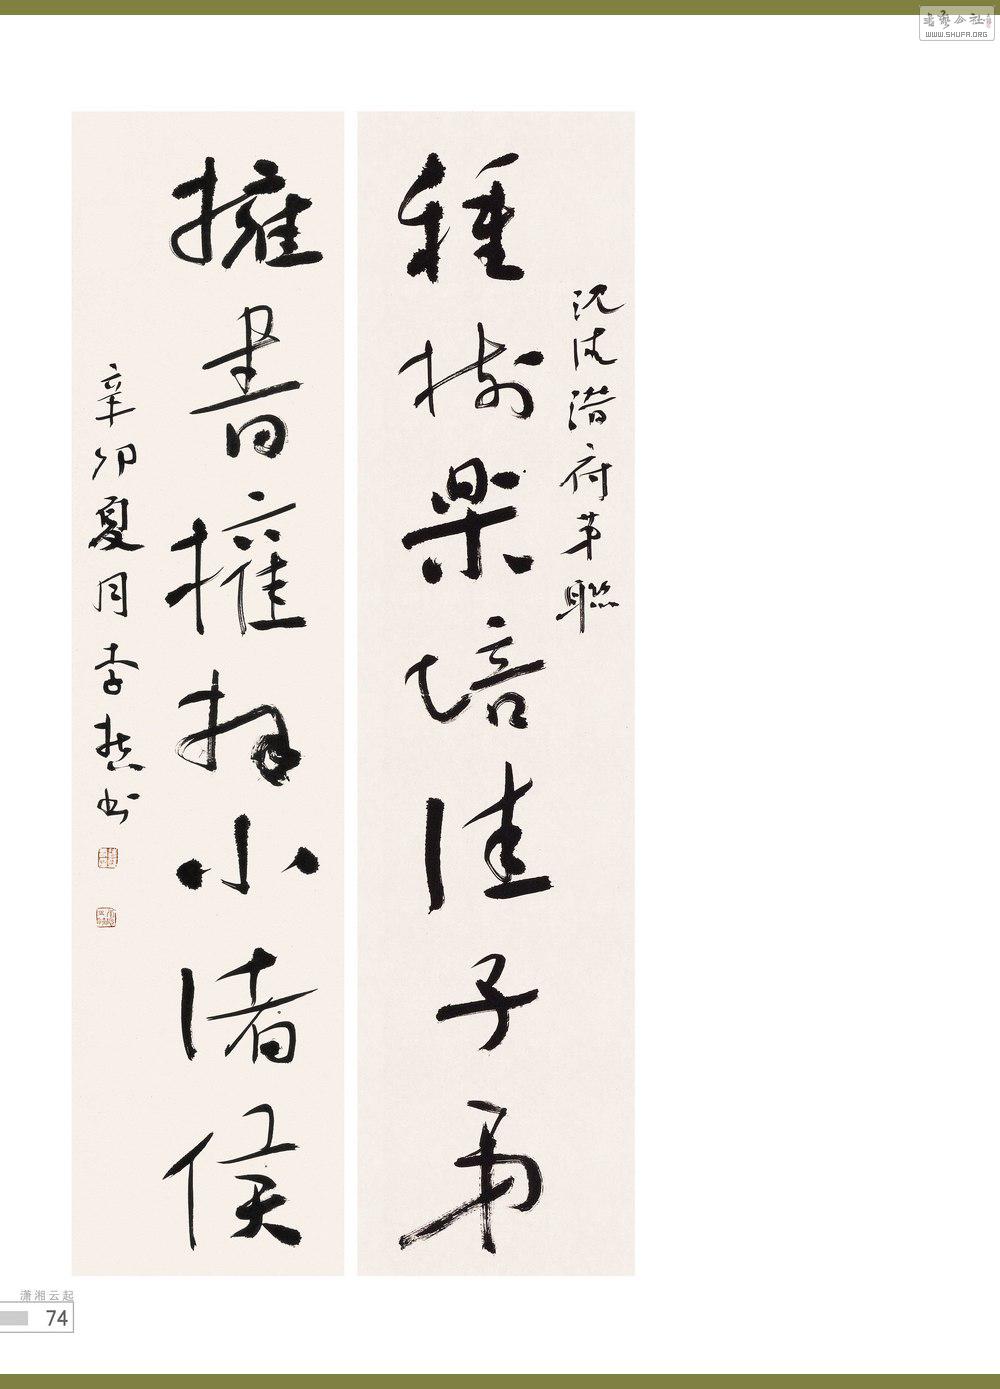 書藝公社
WWW.SHUFA.ORG
沈德潛府第聯
種樹樂培佳子弟
擁書權拜小諸侯
辛卯夏月李书
潇湘云起
74